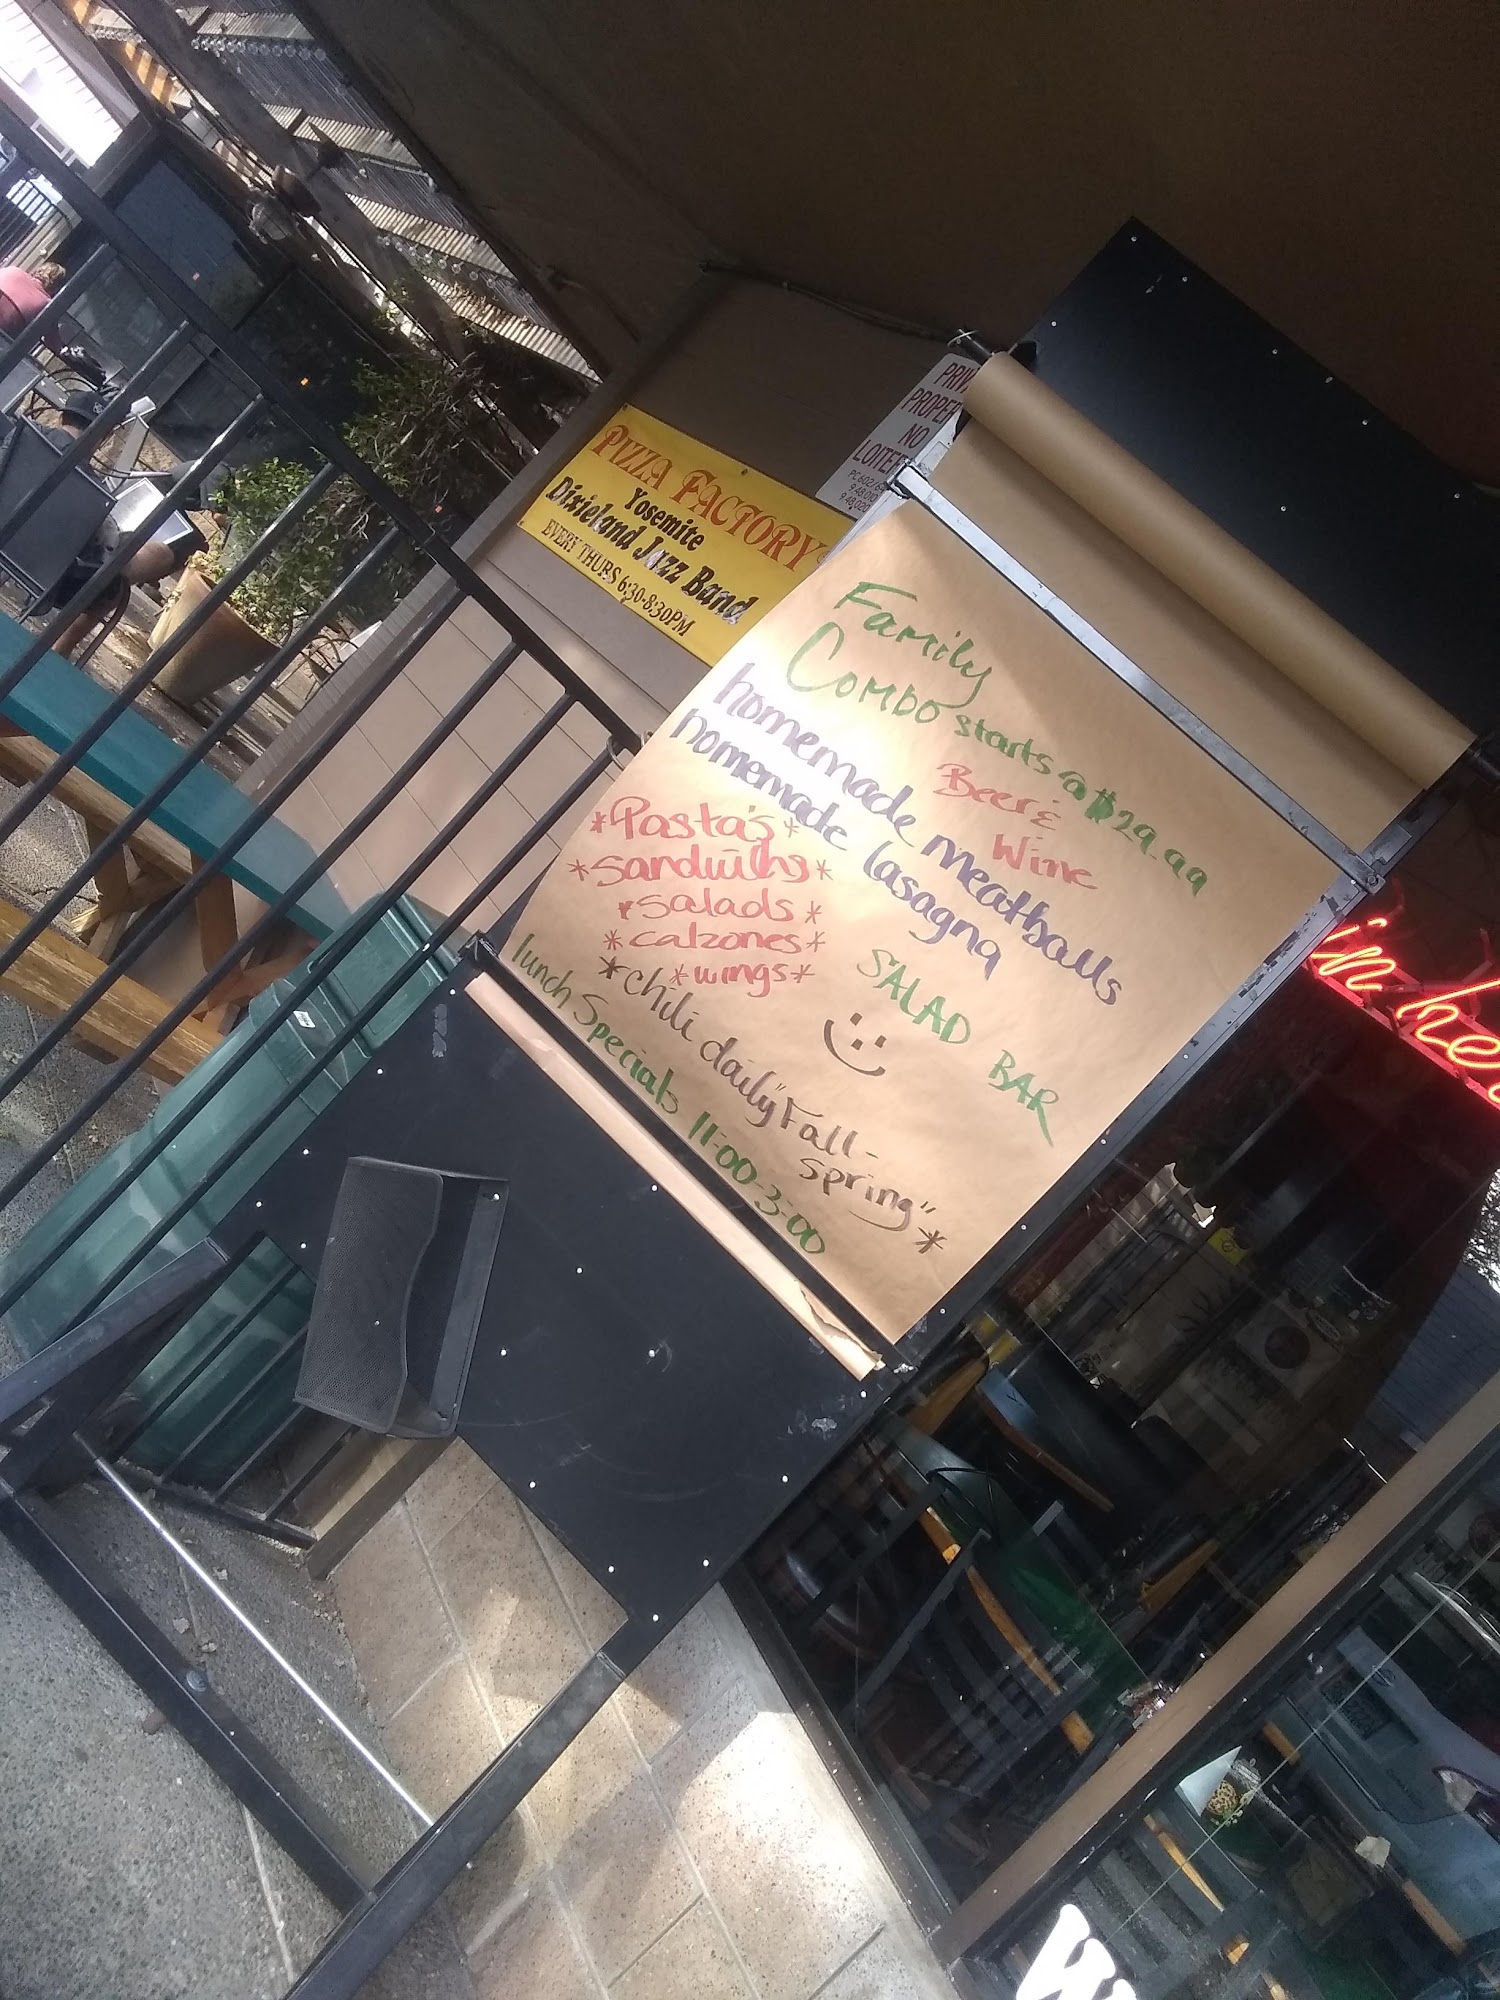 PIZZA FACTORY
Yosemite
Dixieland Jazz Band
EVERY THURS 6:30-8:30PM
NO
Family
Combo starts @ $29.99
Beer &
Wine
homemade meatballs
homemade lasagna
*Pasta's*
*sandwichs*
*salads*
*calzones*
*wings*
SALAD BAR
*chili daily "Fall-
spring"*
lunch Specials 11:00-3:00
in
W